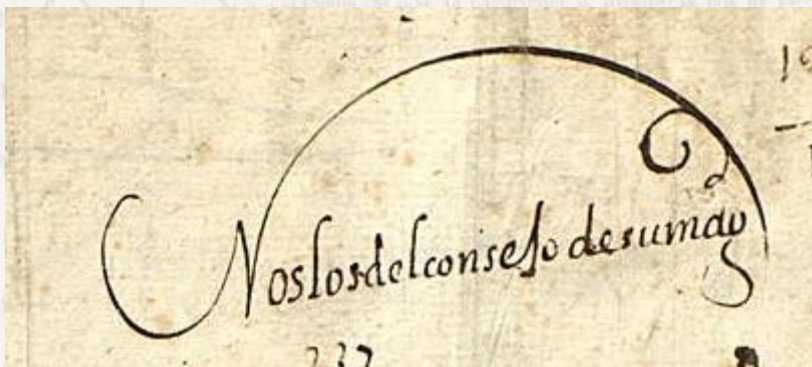 Nos los del consejo de su mag